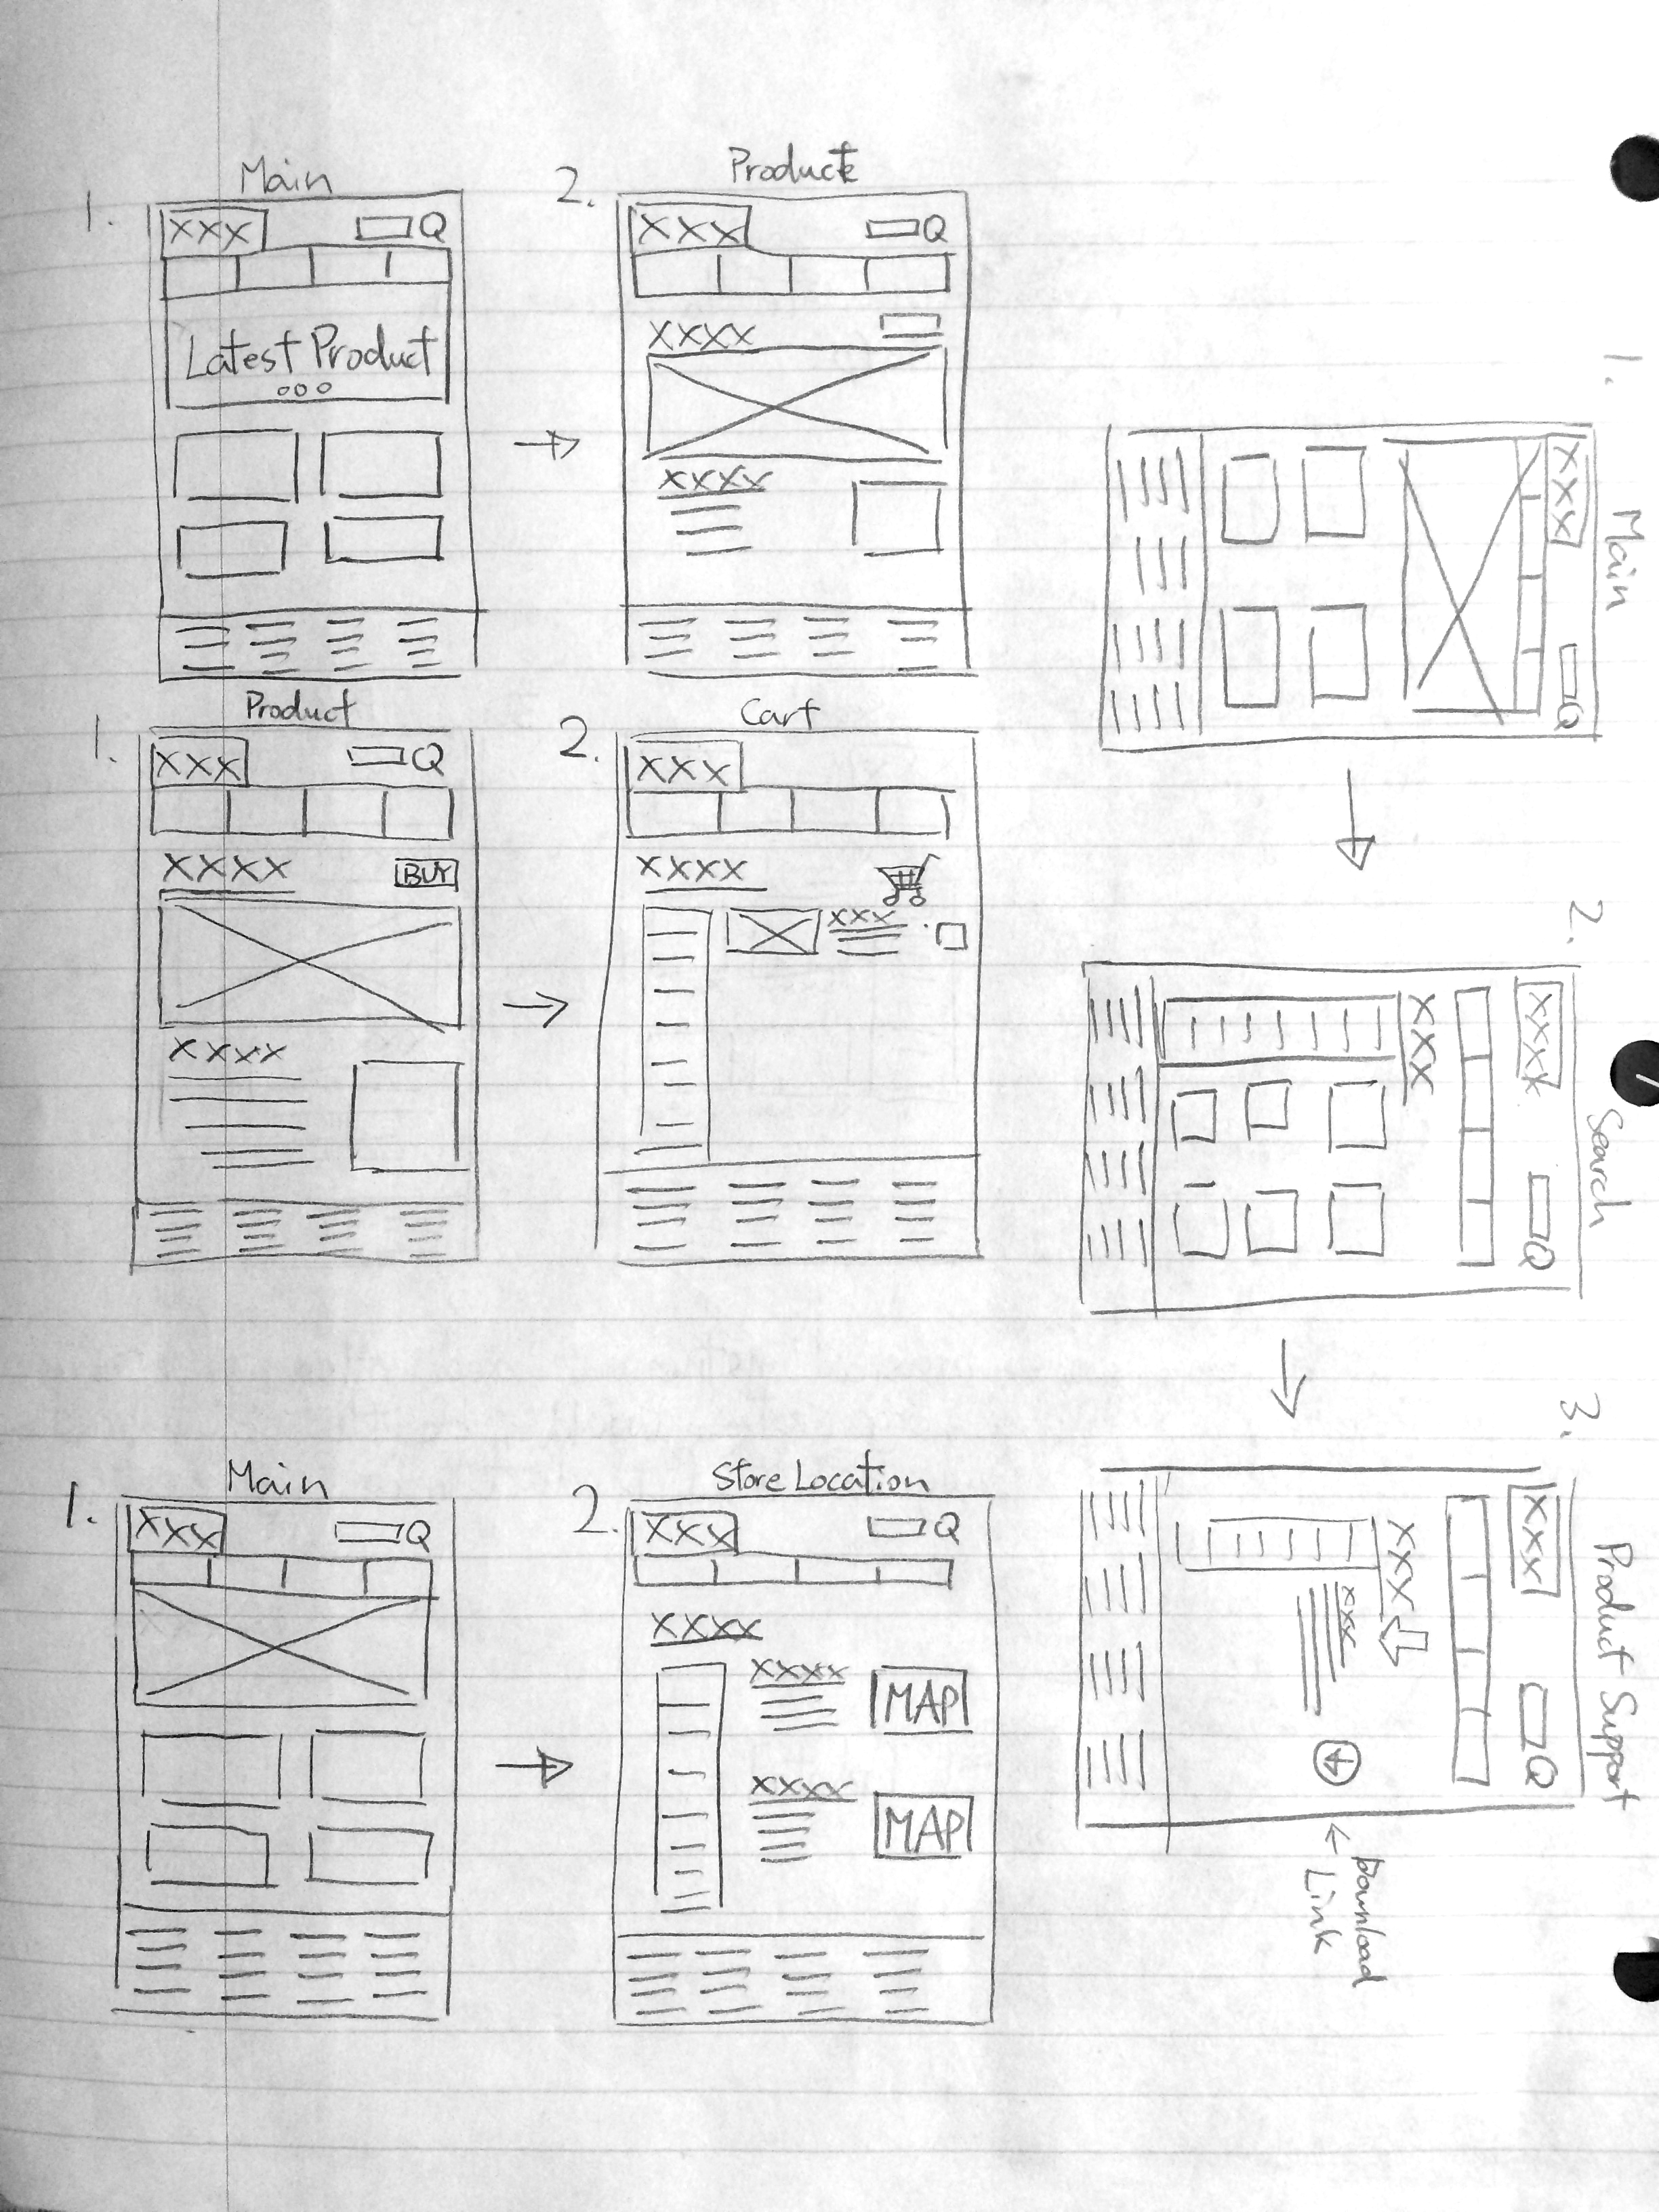 Main
1.
XXX
Q
Latest Product
Product
2.
XXX
Q
XXXX
XXXX
Product
1.
XXX
Q
XXXX
BUY
XXXX
Cart
2.
XXX
XXXX
XXX
Main
1.
XXX
Q
Store Location
2.
XXX
Q
XXXX
XXXX
MAP
XXXX
MAP
1.
Main
XXX
Q
2.
Search
XXXX
Q
XXX
3.
Product Support
XXX
Q
XXX
XXX
← Download
Link